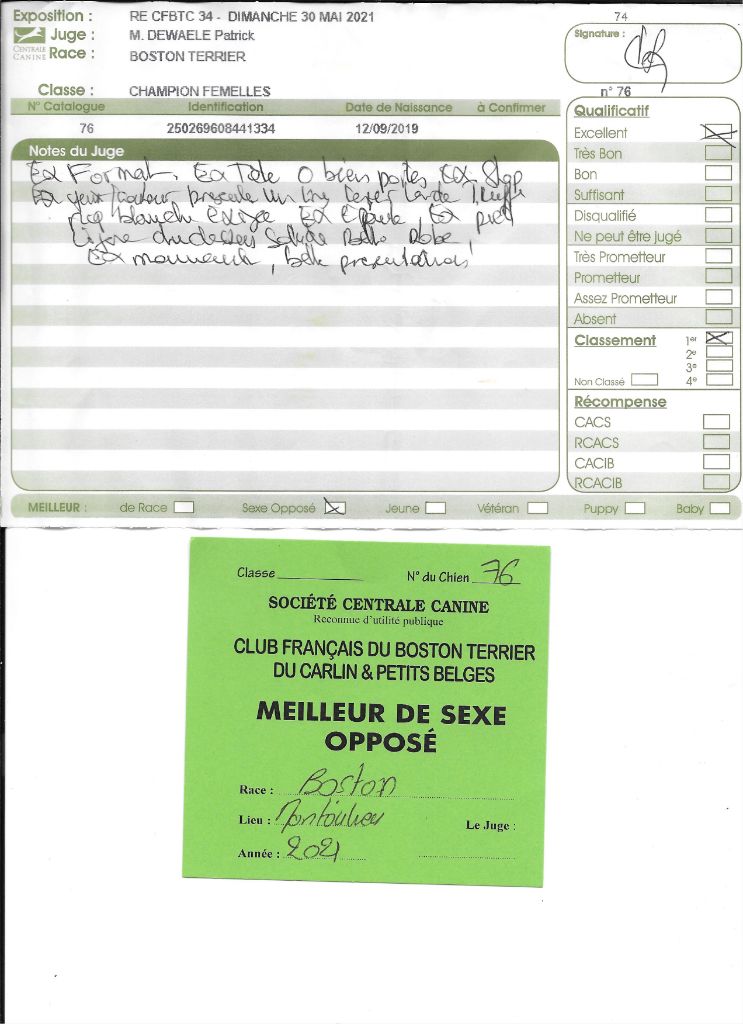 Exposition : RE CFBTC 34 - DIMANCHE 30 MAI 2021
74
CENTRALE CANINE
Juge : M. DEWAELE Patrick
Signature :
Race : BOSTON TERRIER
Classe : CHAMPION FEMELLES
n° 76
N° Catalogue Identification Date de Naissance à Confirmer
76 250269608441334 12/09/2019
Notes du Juge
Ex Format, Ex Tête O bien portées Ex Stop
Ex yeux présente un
blanche Ex Ex pied
Ligne du dessus Robe,
Ex mouvement, belle présentation
Qualificatif
Excellent
Très Bon
Bon
Suffisant
Disqualifié
Ne peut être jugé
Très Prometteur
Prometteur
Assez Prometteur
Absent
Classement 1er
2e
3e
Non Classé 4e
Récompense
CACS
RCACS
CACIB
RCACIB
MEILLEUR : de Race Sexe Opposé Jeune Vétéran Puppy Baby
Classe N° du Chien 76
SOCIÉTÉ CENTRALE CANINE
Reconnue d'utilité publique
CLUB FRANÇAIS DU BOSTON TERRIER
DU CARLIN & PETITS BELGES
MEILLEUR DE SEXE
OPPOSÉ
Race : Boston
Lieu : Montoulieu Le Juge :
Année : 2021